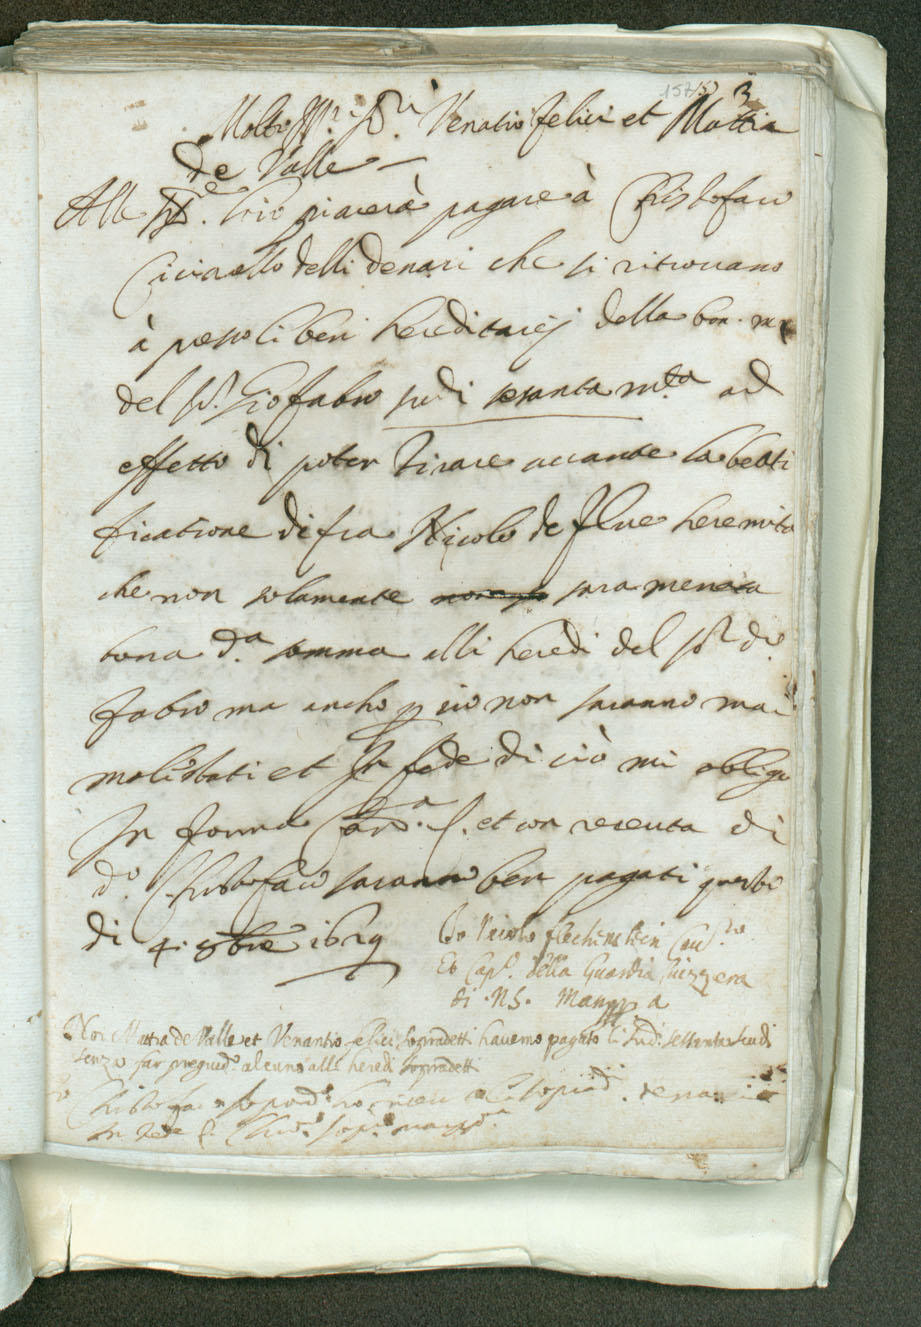 3
Molto Ill.ri Sri. Venatio felici et Mattia
de Valle
Alle SS.e loro piacerà pagare à Christofaro
Ciciarello delli denari che si ritrouano
à presso li beni hereditarij della bon. me
del Sr. Gio fabio scudi setanta m.ta ad
effetto di poter tirare auante la beati
ficatione di fra Nicolo de Flue heremita
che non solamente sara menata
bona d.a somma alli heredi del Sr do
fabio ma ancho p cio non saranno mai
molistati et In fede di ciò mi obligo
In forma et con receuta di
do Christofaro saranno ben pagati questo
di 4. 8bre 1629
Io Nicolo Flechinstein Cau.ro
et Cap.o della Guardia suizzera
di N.S. mano pp.a
Noi Mattia de Valle et Venantio felici sopradetti hauemo pagato li sudi settanta scudi
senza far pregiud.o alcuno alli heredi sopradetti
Christofa ho riceu denari
In fede mano